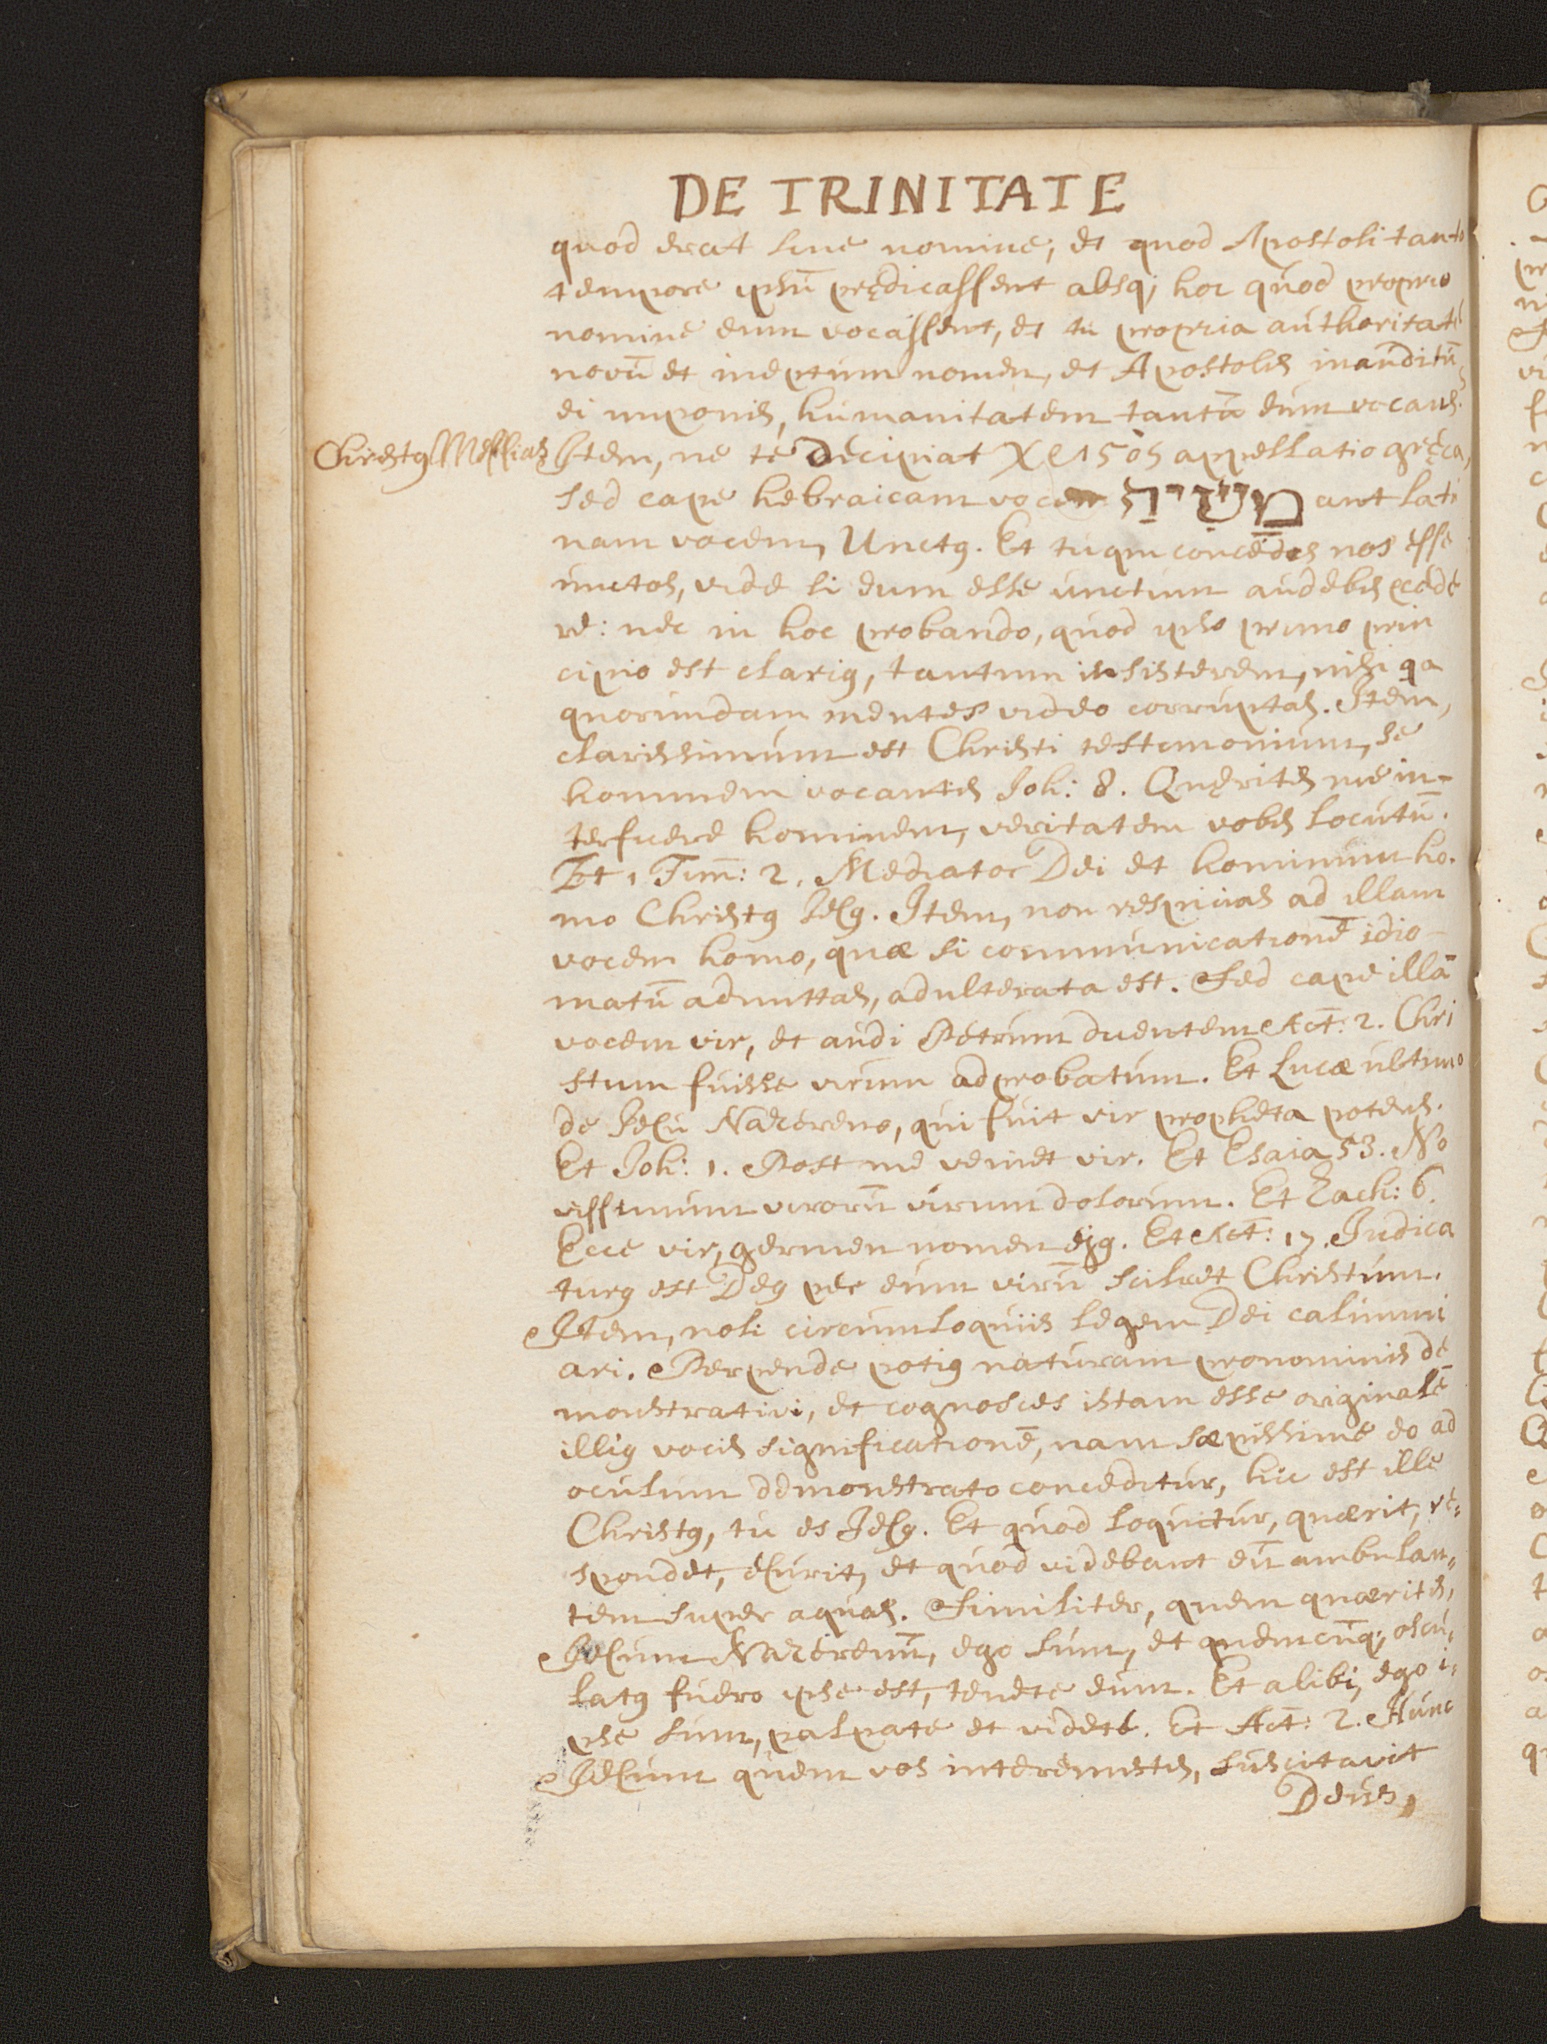 DE TRINITATE
quod erat sine nomine, et quod Apostoli tanto
tempore ipsū prędicassent absq; hoc quod proprio
nomine eum vocassent, et tu propria authoritate
novū et ineptum nomen, et Apostolis inauditū
ei imponis, humanitatem tantū eum vocans.
Christꝰ Messias
Item, ne te decipiat Χριςὸς appellatio gręca,
sed cape hebraicam vocem מָשִׁיחַ aut lati
nam vocem, Unctꝰ. Et tu qui concedes nos esse
unctos, vide si eum esse unctum audebis
re: nec in hoc probando, quod ipso primo prin
cipio est clariꝰ, tantum insisterem, nisi qa
quorundam mentes video corruptas. Item,
clarissimum est Christi testimonium, se
hominem vocantis Joh: 8. Quęritis me in-
terficere hominem, veritatem vobis locutū.
Et 1 Tim̄: 2. Mediator Dei et hominum ho.
mo Christꝰ Jesꝰ. Item, non respicias ad illam
vocem homo, quæ si communicationē idio-
matū admittas, adulterata est. Sed cape illā
vocem vir, et audi Petrum dicentem Act̄: 2. Chri
stum fuisse virum adprobatum. Et Lucæ ultimo
de Jesu Nazereno, qui fuit vir propheta potens.
Et Joh: 1. Post me veniet vir. Et Esaia 53. No
vissimum virorū virum dolorum. Et Zach: 6.
Ecce vir, germen nomen ejꝰ. Et Act̄: 17. Judica
turꝰ est Deꝰ per eum virū scilicet Christum.
Item, noli circumloquiis legem Dei calumni
ari. Perpende potiꝰ naturam pronominis de
monstrativi, et cognosces istam esse originalē
illiꝰ vocis significationē, nam sæpissime eo ad
oculum demonstrato conceditur, hic est ille
Christꝰ, tu es Jesꝰ. Et quod loquitur, quærit, re=
spondet, esurit, et quod videbant eū ambulan=
tem super aquas. Similiter, quem quæritis,
Jesum Nazerenū, ego sum, et quemcūq; oscu=
latꝰ fuero ipse est, tenete eum. Et alibi, ego i=
pse sum, palpate et videte. Et Act̄: 2. Hunc
Jesum quem vos interemistis, suscitavit
Deus,